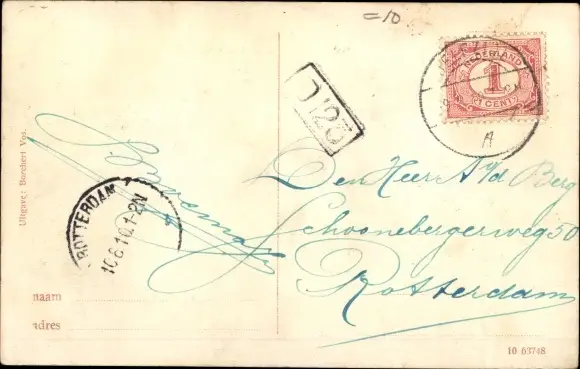 =10
NEDERLAND
1
CENT
D123
A
Den Heer A v/d Berg
Schoonebergerweg 50
Rotterdam
ROTTERDAM
10.6.10.1-2N
Uitgave: Borchert Vos.
naam
adres
10 63748